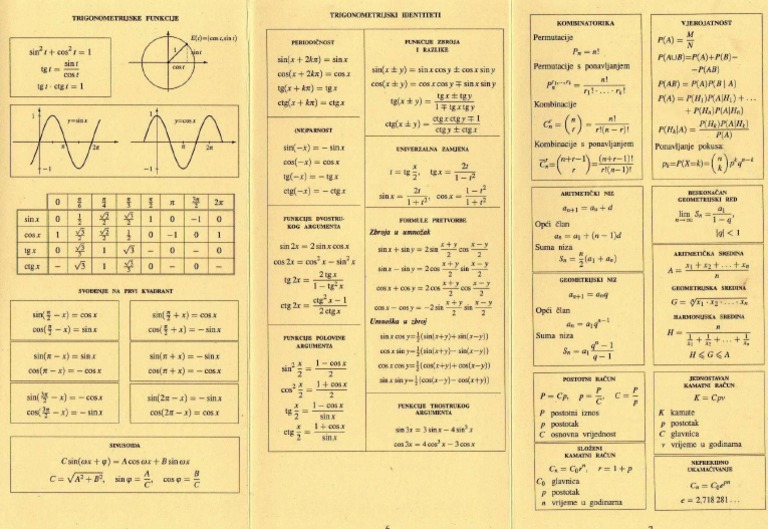 TRIGONOMETRIJSKE FUNKCIJE
sin² t + cos² t = 1
tg t = sin t / cos t
tg t · ctg t = 1
E(t)=(cos t, sin t)
1
sin t
cos t
y=sin x
1
−1
π
2π
y=cos x
1
−1
π
2π
0 π/6 π/4 π/3 π/2 π 3π/2 2π
sin x 0 1/2 √2/2 √3/2 1 0 −1 0
cos x 1 √3/2 √2/2 1/2 0 −1 0 1
tg x 0 √3/3 1 √3 − 0 − 0
ctg x − √3 1 √3/3 0 − 0 −
SVOĐENJE NA PRVI KVADRANT
sin(π/2 − x) = cos x
cos(π/2 − x) = sin x
sin(π/2 + x) = cos x
cos(π/2 + x) = − sin x
sin(π − x) = sin x
cos(π − x) = − cos x
sin(π + x) = − sin x
cos(π + x) = − cos x
sin(3π/2 − x) = − cos x
cos(3π/2 − x) = − sin x
sin(2π − x) = − sin x
cos(2π − x) = cos x
SINUSOIDA
C sin(ωx + φ) = A cos ωx + B sin ωx
C = √(A² + B²), sin φ = A/C, cos φ = B/C
TRIGONOMETRIJSKI IDENTITETI
PERIODIČNOST
sin(x + 2kπ) = sin x
cos(x + 2kπ) = cos x
tg(x + kπ) = tg x
ctg(x + kπ) = ctg x
(NE)PARNOST
sin(−x) = − sin x
cos(−x) = cos x
tg(−x) = − tg x
ctg(−x) = − ctg x
FUNKCIJE DVOSTRU-
KOG ARGUMENTA
sin 2x = 2 sin x cos x
cos 2x = cos² x − sin² x
tg 2x = 2 tg x / (1 − tg² x)
ctg 2x = (ctg² x − 1) / (2 ctg x)
FUNKCIJE POLOVINE
ARGUMENTA
sin² x/2 = (1 − cos x)/2
cos² x/2 = (1 + cos x)/2
tg x/2 = (1 − cos x)/sin x
ctg x/2 = (1 + cos x)/sin x
FUNKCIJE ZBROJA
I RAZLIKE
sin(x ± y) = sin x cos y ± cos x sin y
cos(x ± y) = cos x cos y ∓ sin x sin y
tg(x ± y) = (tg x ± tg y)/(1 ∓ tg x tg y)
ctg(x ± y) = (ctg x ctg y ∓ 1)/(ctg y ± ctg x)
UNIVERZALNA ZAMJENA
t = tg x/2, tg x = 2t/(1 − t²)
sin x = 2t/(1 + t²), cos x = (1 − t²)/(1 + t²)
FORMULE PRETVORBE
Zbroja u umnožak
sin x + sin y = 2 sin (x + y)/2 cos (x − y)/2
sin x − sin y = 2 cos (x + y)/2 sin (x − y)/2
cos x + cos y = 2 cos (x + y)/2 cos (x − y)/2
cos x − cos y = −2 sin (x + y)/2 sin (x − y)/2
Umnoška u zbroj
sin x cos y=½(sin(x+y)+ sin(x−y))
cos x sin y=½(sin(x+y)− sin(x−y))
cos x cos y=½(cos(x+y)+ cos(x−y))
sin x sin y=½(cos(x−y)− cos(x+y))
FUNKCIJE TROSTRUKOG
ARGUMENTA
sin 3x = 3 sin x − 4 sin³ x
cos 3x = 4 cos³ x − 3 cos x
6
KOMBINATORIKA
Permutacije
Pₙ = n!
Permutacije s ponavljanjem
Pₙ^(r₁,...,rₖ) = n!/(r₁! · ... · rₖ!)
Kombinacije
Cₙʳ = (n r) = n!/(r!(n − r)!)
Kombinacije s ponavljanjem
C̄ₙʳ = (n+r−1 r) = (n+r−1)!/(r!(n−1)!)
VJEROJATNOST
P(A) = M/N
P(A∪B)=P(A)+P(B)−
−P(AB)
P(AB) = P(A)P(B | A)
P(A) = P(H₁)P(A|H₁) + ...
+ P(Hₙ)P(A|Hₙ)
P(Hₖ|A) = P(Hₖ)P(A|Hₖ)/P(A)
Ponavljanje pokusa:
pₖ=P(X=k)= (n k) pᵏqⁿ⁻ᵏ
ARITMETIČKI NIZ
aₙ₊₁ = aₙ + d
Opći član
aₙ = a₁ + (n − 1)d
Suma niza
Sₙ = n/2 (a₁ + aₙ)
GEOMETRIJSKI NIZ
aₙ₊₁ = aₙq
Opći član
aₙ = a₁qⁿ⁻¹
Suma niza
Sₙ = a₁ (qⁿ − 1)/(q − 1)
BESKONAČAN
GEOMETRIJSKI RED
lim n→∞ Sₙ = a₁/(1 − q),
|q| < 1
ARITMETIČKA SREDINA
A = (x₁ + x₂ + ... + xₙ)/n
GEOMETRIJSKA SREDINA
G = ⁿ√(x₁ · x₂ · ... · xₙ)
HARMONIJSKA SREDINA
H = n/(1/x₁ + 1/x₂ + ... + 1/xₙ)
H ⩽ G ⩽ A
POSTOTNI RAČUN
P = Cp, p = P/C, C = P/p
P postotni iznos
p postotak
C osnovna vrijednost
SLOŽENI
KAMATNI RAČUN
Cₙ = C₀rⁿ, r = 1 + p
C₀ glavnica
p postotak
n vrijeme u godinama
JEDNOSTAVAN
KAMATNI RAČUN
K = Cpv
K kamate
p postotak
C glavnica
v vrijeme u godinama
NEPREKIDNO
UKAMAĆIVANJE
Cₙ = C₀eᵖⁿ
e = 2,718 281 ...